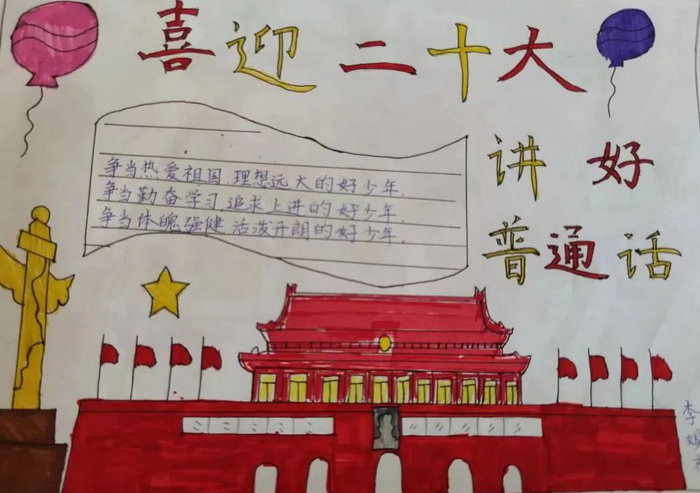 喜迎二十大
讲好
普通话
争当热爱祖国,理想远大的好少年.
争当勤奋学习,追求上进的好少年.
争当体魄强健,活泼开朗的好少年.
李